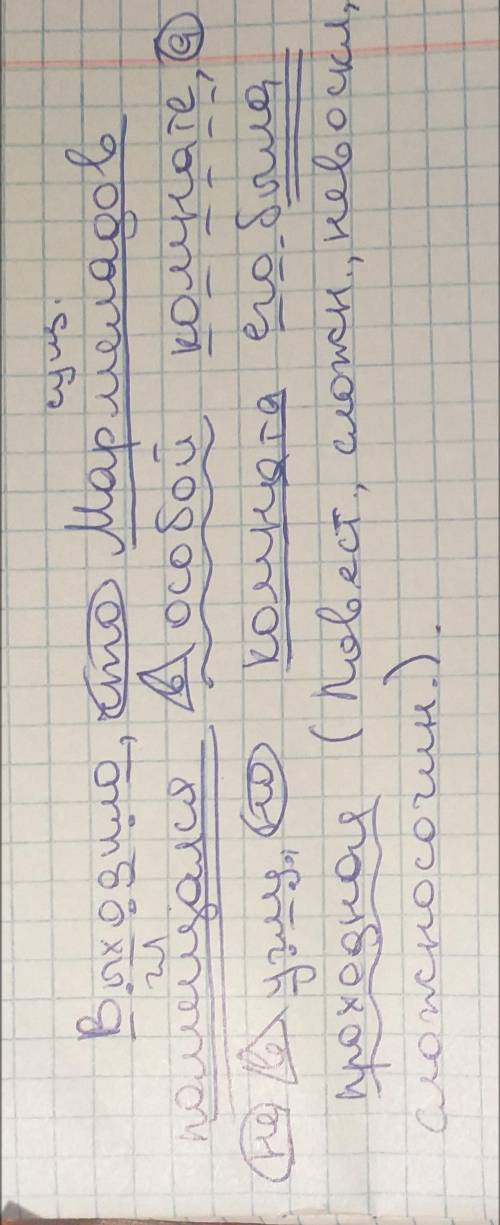 сущ.
Выходило, что Мармеладов
гл
помещался в особой комнате, а
не в углу, но комната его была
проходная (Повест., сложн., невоскл.,
сложносочин.).